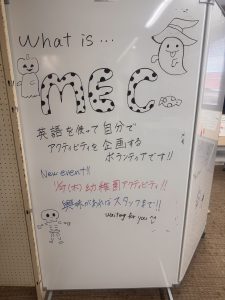 What is ...
MEC
英語を使って自分で
アクティビティを企画する
ボランティアです!!
New event!!
(木)幼稚園アクティビティ!!
興味があればスタッフまで!!
waiting for you